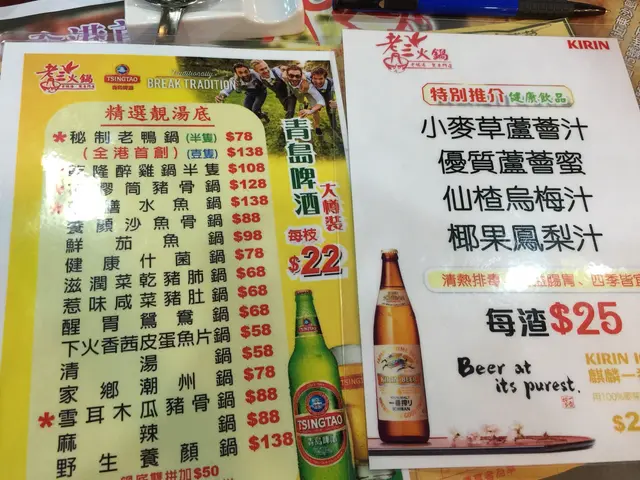 老三火鍋
TSINGTAO
青島啤酒
Traditionally
BREAK TRADITION
精選靚湯底
*秘制老鴨鍋(半隻) $78
(全港首創)(壹隻) $138
隆醉雞鍋半隻 $108
膠筒豬骨鍋 $128
水魚鍋 $138
養顏沙魚骨鍋 $88
鮮茄魚鍋 $98
健康什菌鍋 $78
滋潤菜乾豬肺鍋 $68
惹味咸菜豬肚鍋 $68
醒胃鴛鴦鍋 $68
下火香茜皮蛋魚片鍋 $58
清湯鍋 $58
家鄉潮州鍋 $78
*雪耳木瓜豬骨鍋 $88
麻辣鍋 $88
野生養顏鍋 $138
鍋底雙拼加$50
青島啤酒
大樽裝
每枝
$22
TSINGTAO
青島啤酒
老三火鍋
KIRIN
特別推介 健康飲品
小麥草蘆薈汁
優質蘆薈蜜
仙楂烏梅汁
椰果鳳梨汁
清熱排毒
腸胃、四季皆宜
每渣$25
Beer at
its purest.
KIRIN
麒麟一番
用100%麥芽
$2